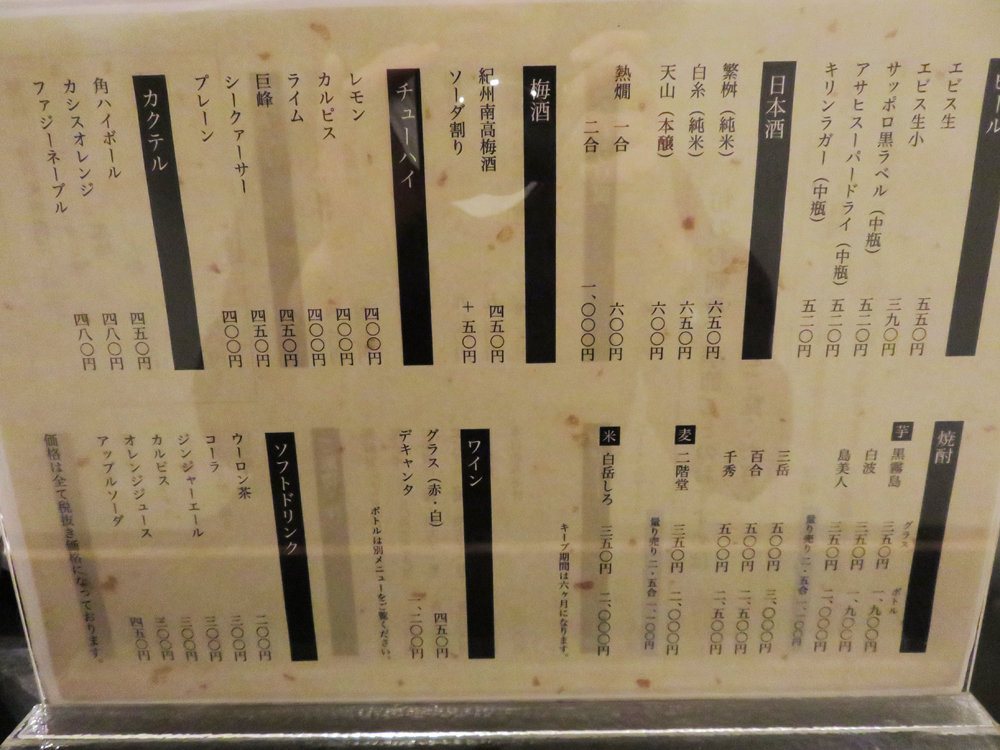 ビール
エビス生 五五〇円
エビス生小 三九〇円
サッポロ黒ラベル（中瓶） 五二〇円
アサヒスーパードライ（中瓶） 五二〇円
キリンラガー（中瓶） 五二〇円
日本酒
繁桝（純米） 六五〇円
白糸（純米） 六五〇円
天山（本醸） 六〇〇円
熱燗 一合 六〇〇円
二合 一、〇〇〇円
梅酒
紀州南高梅酒 四五〇円
ソーダ割り ＋五〇円
チューハイ
レモン 四〇〇円
カルピス 四〇〇円
ライム 四〇〇円
巨峰 四五〇円
シークァーサー 四五〇円
プレーン 四〇〇円
カクテル
角ハイボール 四五〇円
カシスオレンジ 四八〇円
ファジーネーブル 四八〇円
焼酎
グラス ボトル
芋 黒霧島 三五〇円 一、九〇〇円
白波 三五〇円 一、九〇〇円
島美人 三五〇円 二、〇〇〇円
量り売り 二・五合 一、一〇〇円
三岳 五〇〇円 三、〇〇〇円
百合 五〇〇円 二、五〇〇円
千秀 五〇〇円 二、五〇〇円
麦 二階堂 三五〇円 二、〇〇〇円
量り売り 二・五合 一、一〇〇円
米 白岳しろ 三五〇円 二、〇〇〇円
キープ期間は六ヶ月になります。
ワイン
グラス（赤・白） 四五〇円
デキャンタ 一、二〇〇円
ボトルは別メニューをご覧ください。
ソフトドリンク
ウーロン茶 二〇〇円
コーラ 三〇〇円
ジンジャーエール 三〇〇円
カルピス 三〇〇円
オレンジジュース 三〇〇円
アップルソーダ 四五〇円
価格は全て税抜き価格になっております。